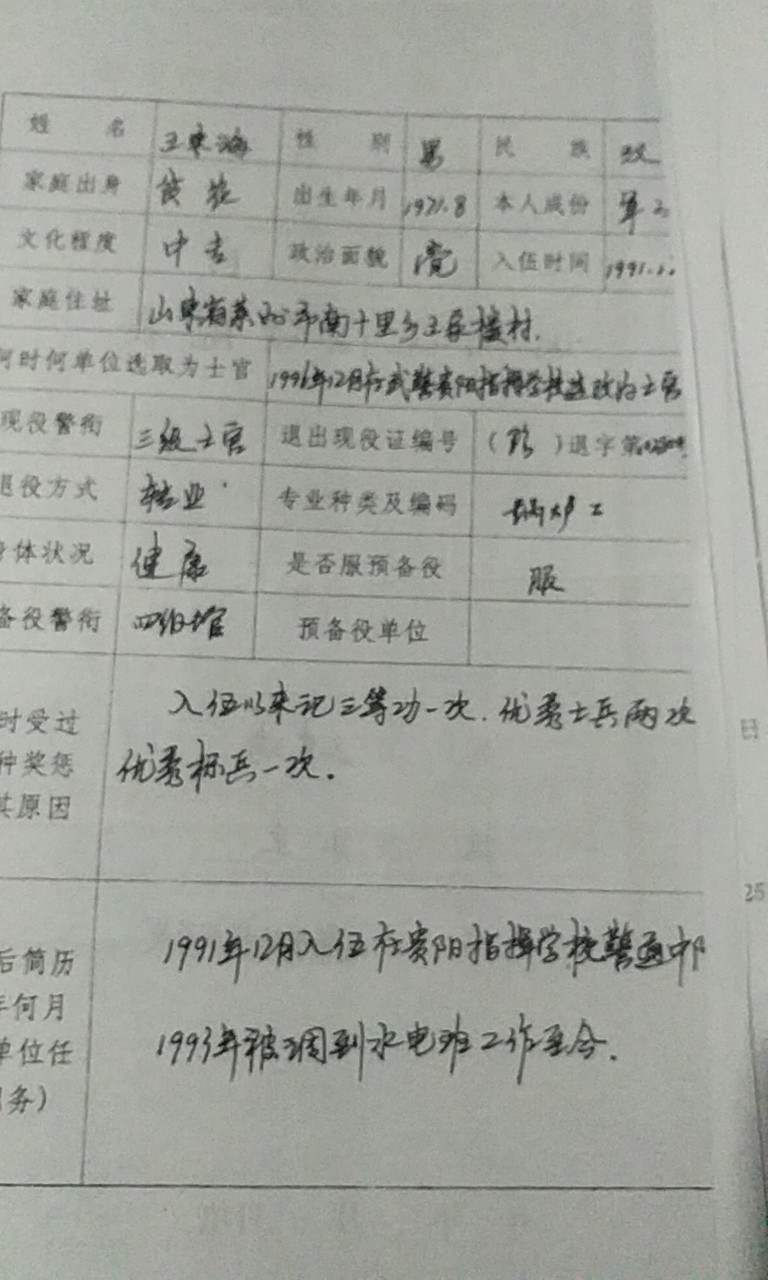 姓 名 王東海 性 别 男 民 族 汉
家庭出身 贫农 出生年月 1971.8 本人成份 军人
文化程度 中专 政治面貌 党 入伍时间 1991.12
家庭住址 山東省莱州市南十里乡王家楼村.
何时何单位选取为士官 1996年12月在武警贵阳指挥学校选改为士官
现役警衔 三级士官 退出现役证编号 ( 黔 )退字第
退役方式 转业 专业种类及编码 锅炉工
身体状况 健康 是否服预备役 服
备役警衔 四级士官 预备役单位
时受过 入伍以来记三等功一次.优秀士兵两次
种奖惩 优秀标兵一次.
其原因
后简历 1991年12月入伍在贵阳指挥学校警通中队
年何月
单位任 1993年被调到水电班工作至今.
务)
25
日